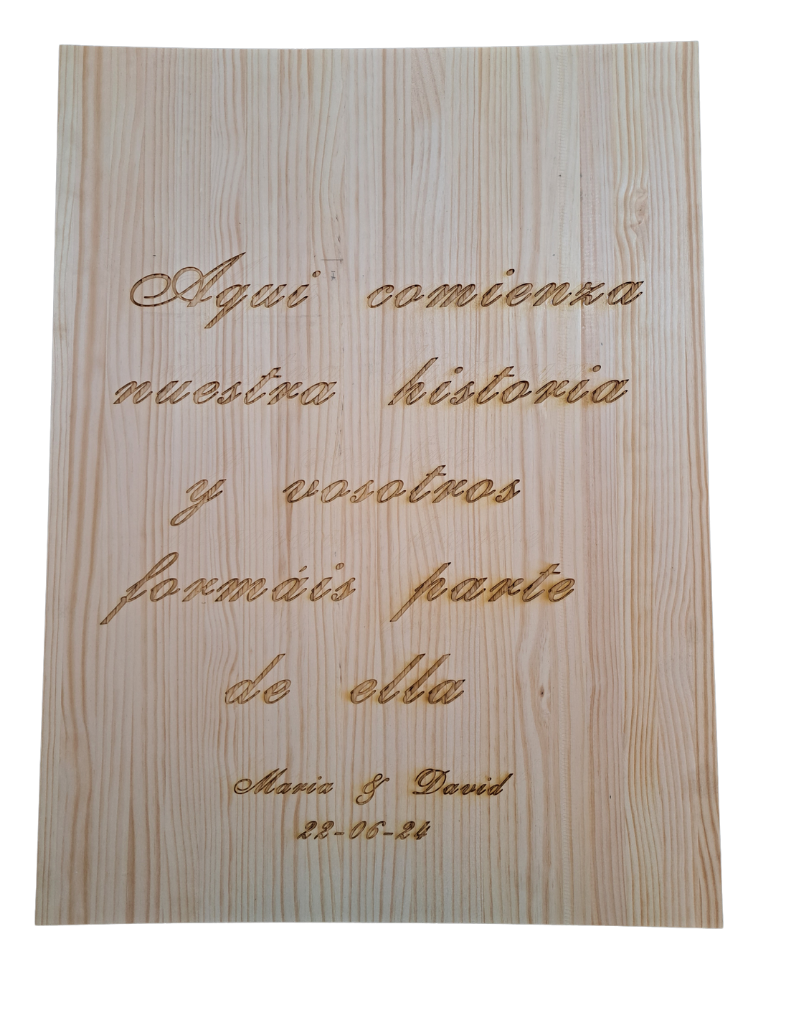 Aqui comienza
nuestra historia
y vosotros
formáis parte
de ella
Maria & David
22-06-24